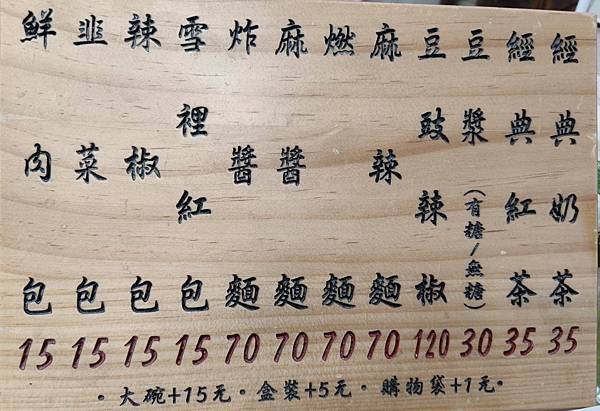 經典奶茶 35
經典紅茶 35
豆漿(有糖/無糖) 30
豆豉辣椒 120
麻辣麵 70
燃麵 70
麻醬麵 70
炸醬麵 70
雪裡紅包 15
辣椒包 15
韭菜包 15
鮮肉包 15
•大碗+15元•盒裝+5元•購物袋+1元•